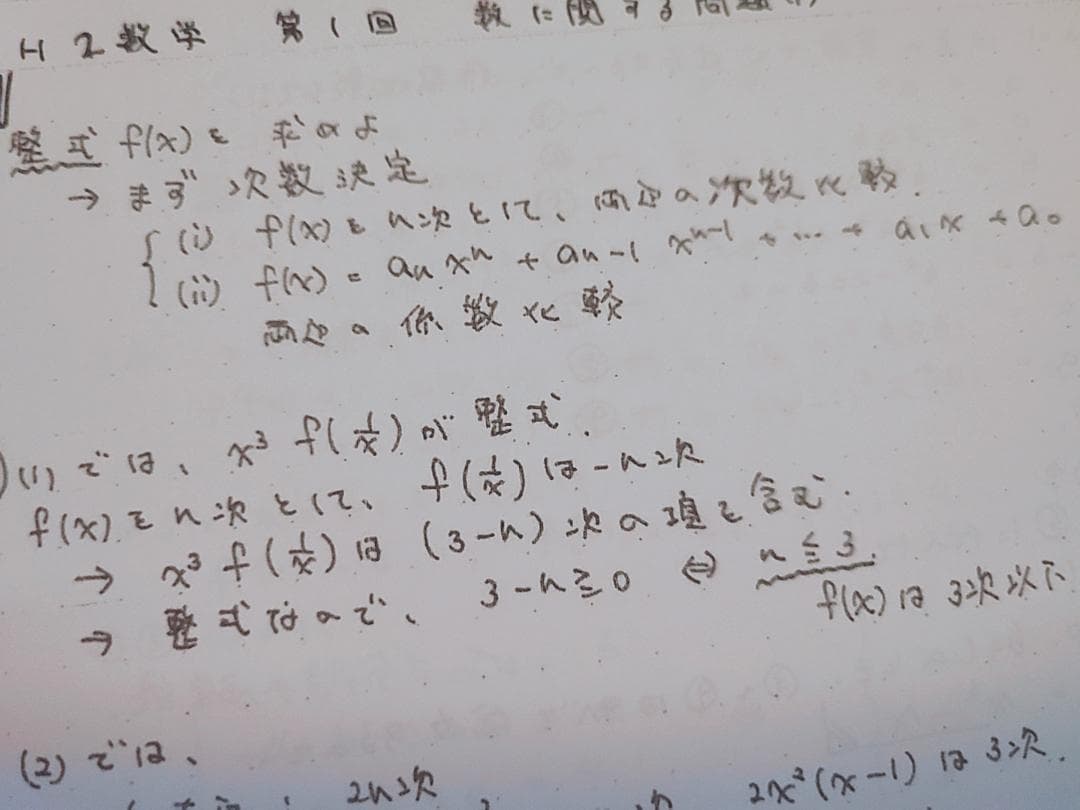 H2数学 第1回 数に関する問題(1)
整式 f(x)を 求めよ
→ まず 次数決定
(i) f(x)をn次として、両辺の次数比較.
(ii) f(x) = aₙxⁿ + aₙ₋₁ xⁿ⁻¹ + … + a₁x + a₀
両辺の 係数比較
(1) では、x³ f(1/x) が 整式.
f(x)をn次として、f(1/x)は-n次
→ x³ f(1/x)は (3-n)次の項を含む.
→ 整式なので、 3-n≧0 ⇔ n≦3.
f(x)は3次以下
(2) では、
2n次 2x²(x-1)は3次.